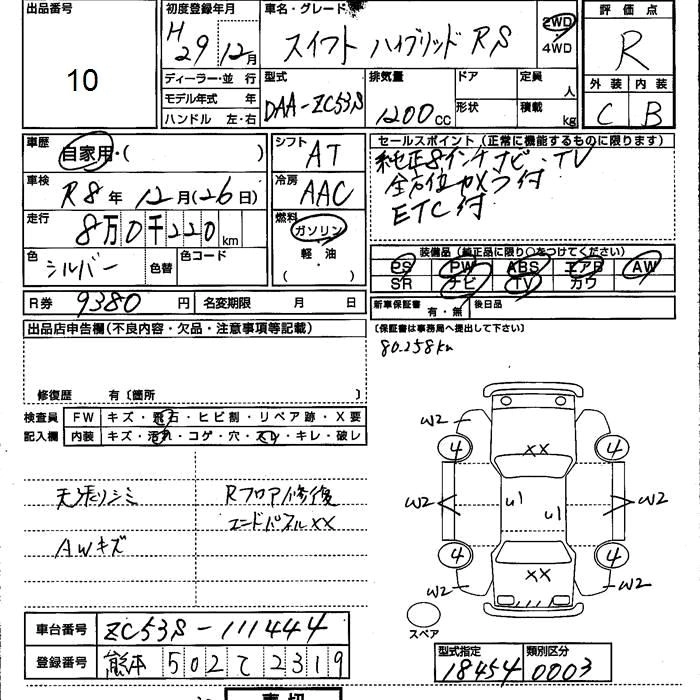 出品番号
10
初度登録年月
H29 12月
車名・グレード
スイフト ハイブリッド RS
2WD
・4WD
評価点
R
外装 内装
C B
ディーラー・並行
モデル年式 年
ハンドル 左・右
型式
DAA-ZC53S
排気量
1200cc
ドア
形状
定員 人
積載 kg
車歴
自家用・( )
シフト
AT
車検
R8年 12月(26日)
冷房
AAC
走行
8万0千220km
燃料
ガソリン
軽・油
( )
色
シルバー
色替
色コード
R券 9380円
名変期限 月 日
セールスポイント(正常に機能するものに限ります)
純正8インチナビ・TV
全方位カメラ付
ETC付
装備品(純正品に限り○をつけてください)
PS PW ABS エアB AW
SR ナビ TV カワ
新車保証書 有・無
後日品
(保証書は事務局へ提出して下さい)
80.258km
出品店申告欄(不良内容・欠品・注意事項等記載)
修復歴 有〔箇所 〕
検査員 FW キズ・飛石・ヒビ割・リペア跡・X要
記入欄 内装 キズ・汚れ・コゲ・穴・スレ・キレ・破レ
天張りシミ
AWキズ
Rフロア修復
エンドパネルXX
W2 W2
4 XX 4
W2 U1 U1 W2
4 XX 4
W2 W2
スペア
車台番号 ZC53S-111444
登録番号 熊本 502 て 2319
型式指定 類別区分
18454 0003